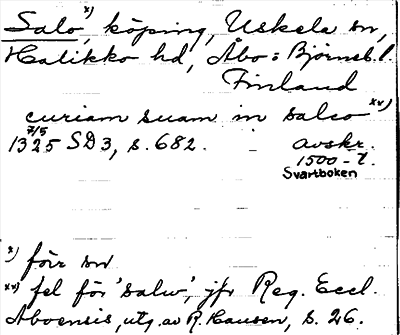 Salo x), köping, Uskela sn,
Halikko hd, Åbo= Björneb. l.
Finland
curiam suam in salco xx)
7/5
1325 SD3, s. 682. avskr.
1500-t.
Svartboken
x) förr sn
xx) fel för 'salw', jfr Reg. Eccl.
Aboensis, utg. av R. Hausen, s. 26.